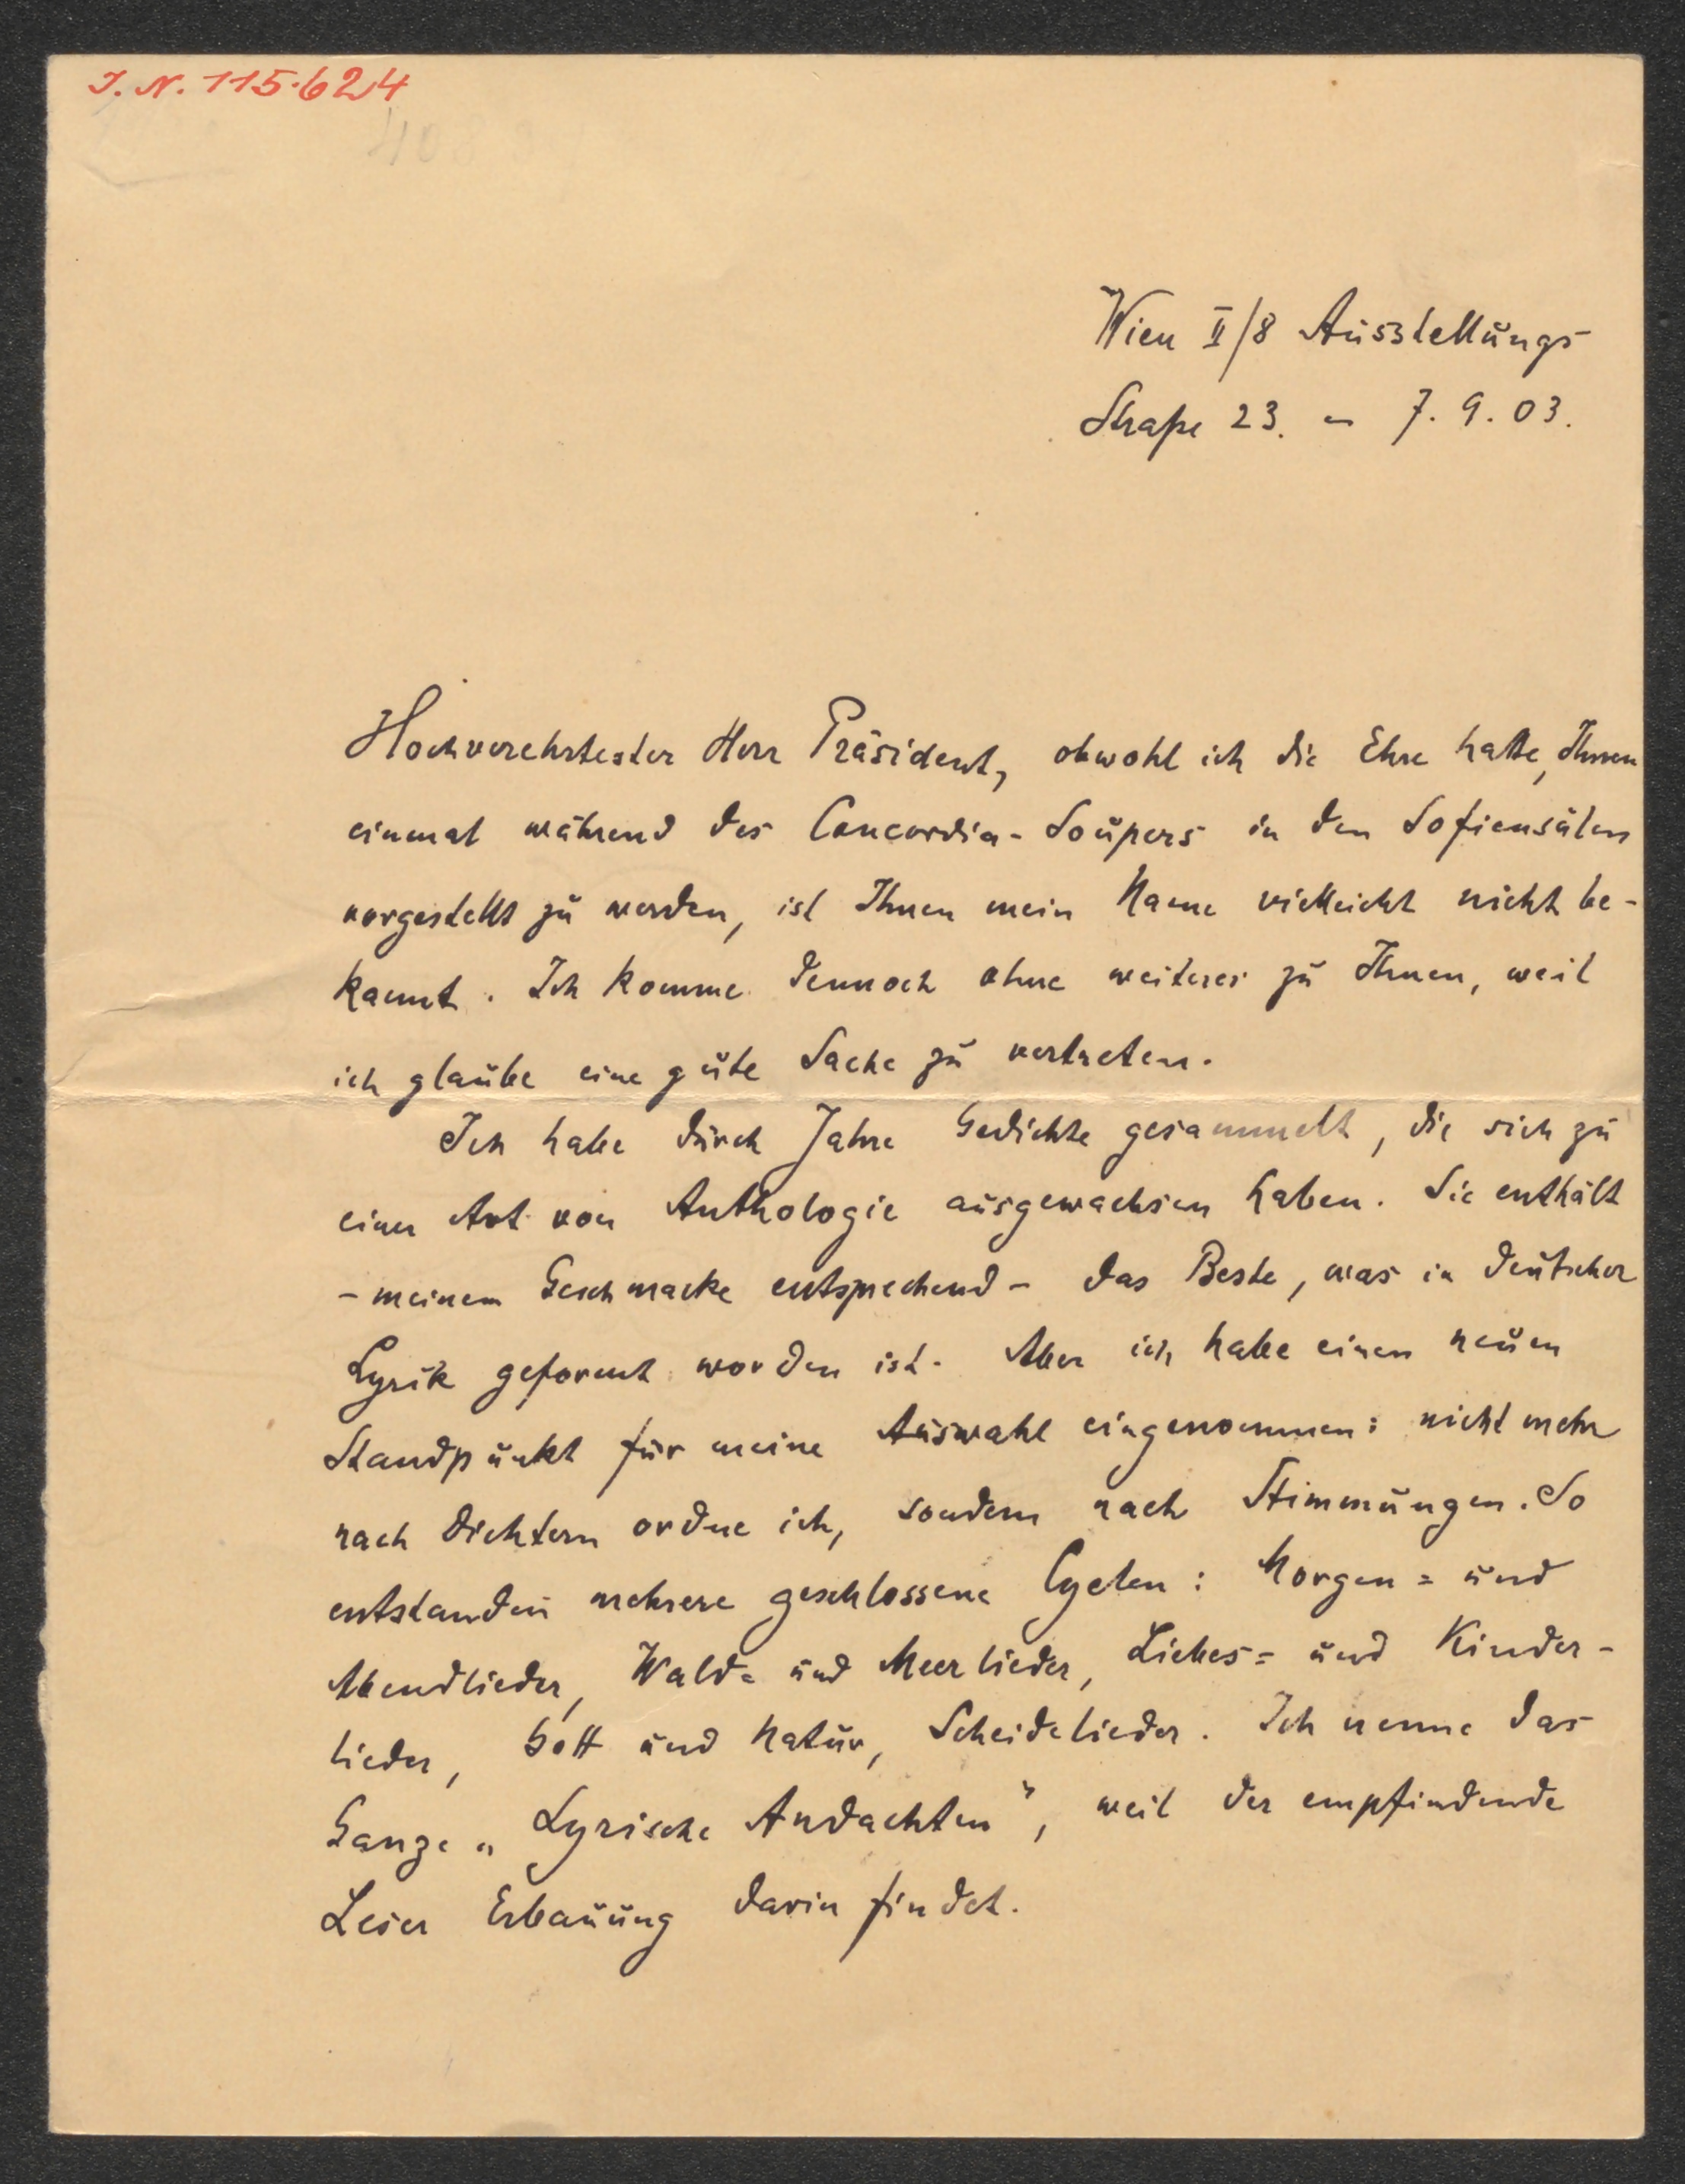 J. N. 115.624
408
Wien II/8 Ausstellungs
Straße 23. – 7. 9. 03.
Hochverehrtester Herr Präsident, obwohl ich die Ehre hatte, Ihnen
einmal während des Concordia-Soupers in den Sofiensälen
vorgestellt zu werden, ist Ihnen mein Name vielleicht nicht be-
kannt. Ich komme dennoch ohne weiteres zu Ihnen, weil
ich glaube eine gute Sache zu vertreten.
Ich habe durch Jahre Gedichte gesammelt, die sich zu
einer Art von Anthologie ausgewachsen haben. Sie enthält
– meinem Geschmacke entsprechend – das Beste, was in deutscher
Lyrik geformt worden ist. Aber ich habe einen neuen
Standpunkt für meine Auswahl eingenommen: nicht mehr
nach Dichtern ordne ich, sondern nach Stimmungen. So
entstanden mehrere geschlossene Cyclen: Morgen= und
Abendlieder, Wald= und Meerlieder, Liebes= und Kinder-
lieder, Gott und Natur, Scheidelieder. Ich nenne das
Ganze „Lyrische Andachten", weil der empfindende
Leser Erbauung darin findet.